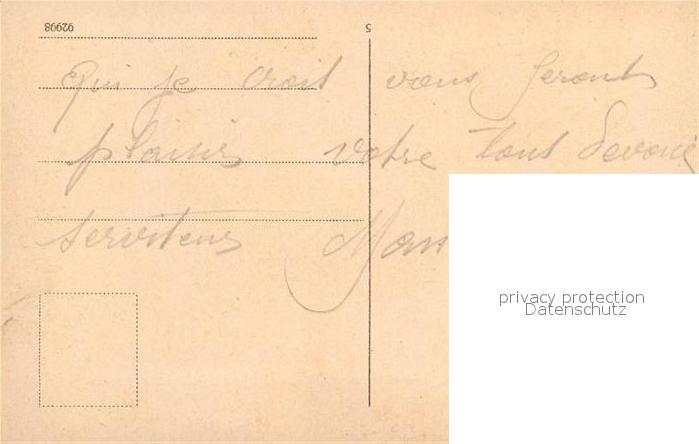 92998
5
Qui je croit vous seront
plaisir votre tout devoué
serviteur
privacy protection
Datenschutz